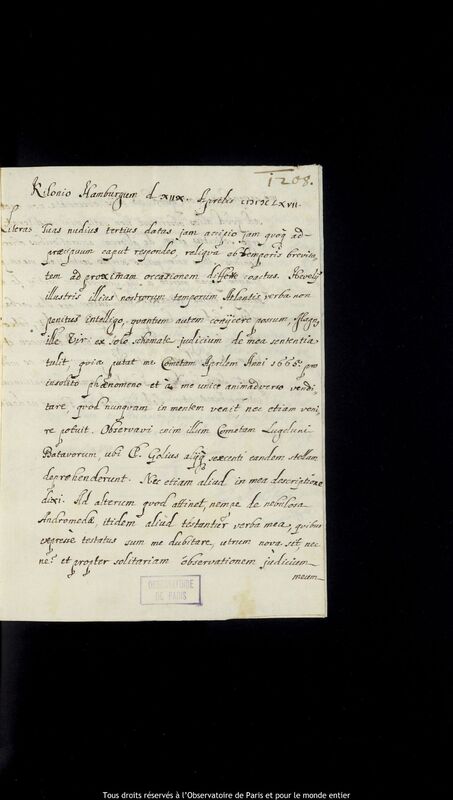 1208.
Kilonio Hamburgum d. XIIX. Aprilis CIƆIƆCLXVII.
Literas Tuas nudius tertius datas jam accipio jam quoq; ad
præcipuum caput respondeo, reliqua ob temporis brevita,
tem ad proximam occasionem differre coactus. Hevelij
illustris illius nostrorum temporum Atlantis verba non
penitus intelligo, quantum autem conijcere possum,
ille Vir ex solo schemate judicium de mea sententia
tulit, quia putat me Cometam Aprilem Anni 1665 pro
insolito phænomeno et à me unice animadverso vendi,
tare, quod nunquam in mentem venit nec etiam veni,
re potuit. Observavi enim illum Cometam Lugduni
Batavorum, ubi Cl. Golius alijq; sexcenti eandem stellam
deprehenderunt. Nec etiam aliud in mea descriptione
dixi. Ad alterum quod attinet, nempe de nebulosa
Andromedæ itidem aliud testantur verba mea, quibus
expresse testatus sum me dubitare, utrum nova sit, nec
ne? et propter solitariam observationem judicium
meum
OBSERVATOIRE
DE PARIS
Tous droits réservés à l'Observatoire de Paris et pour le monde entier